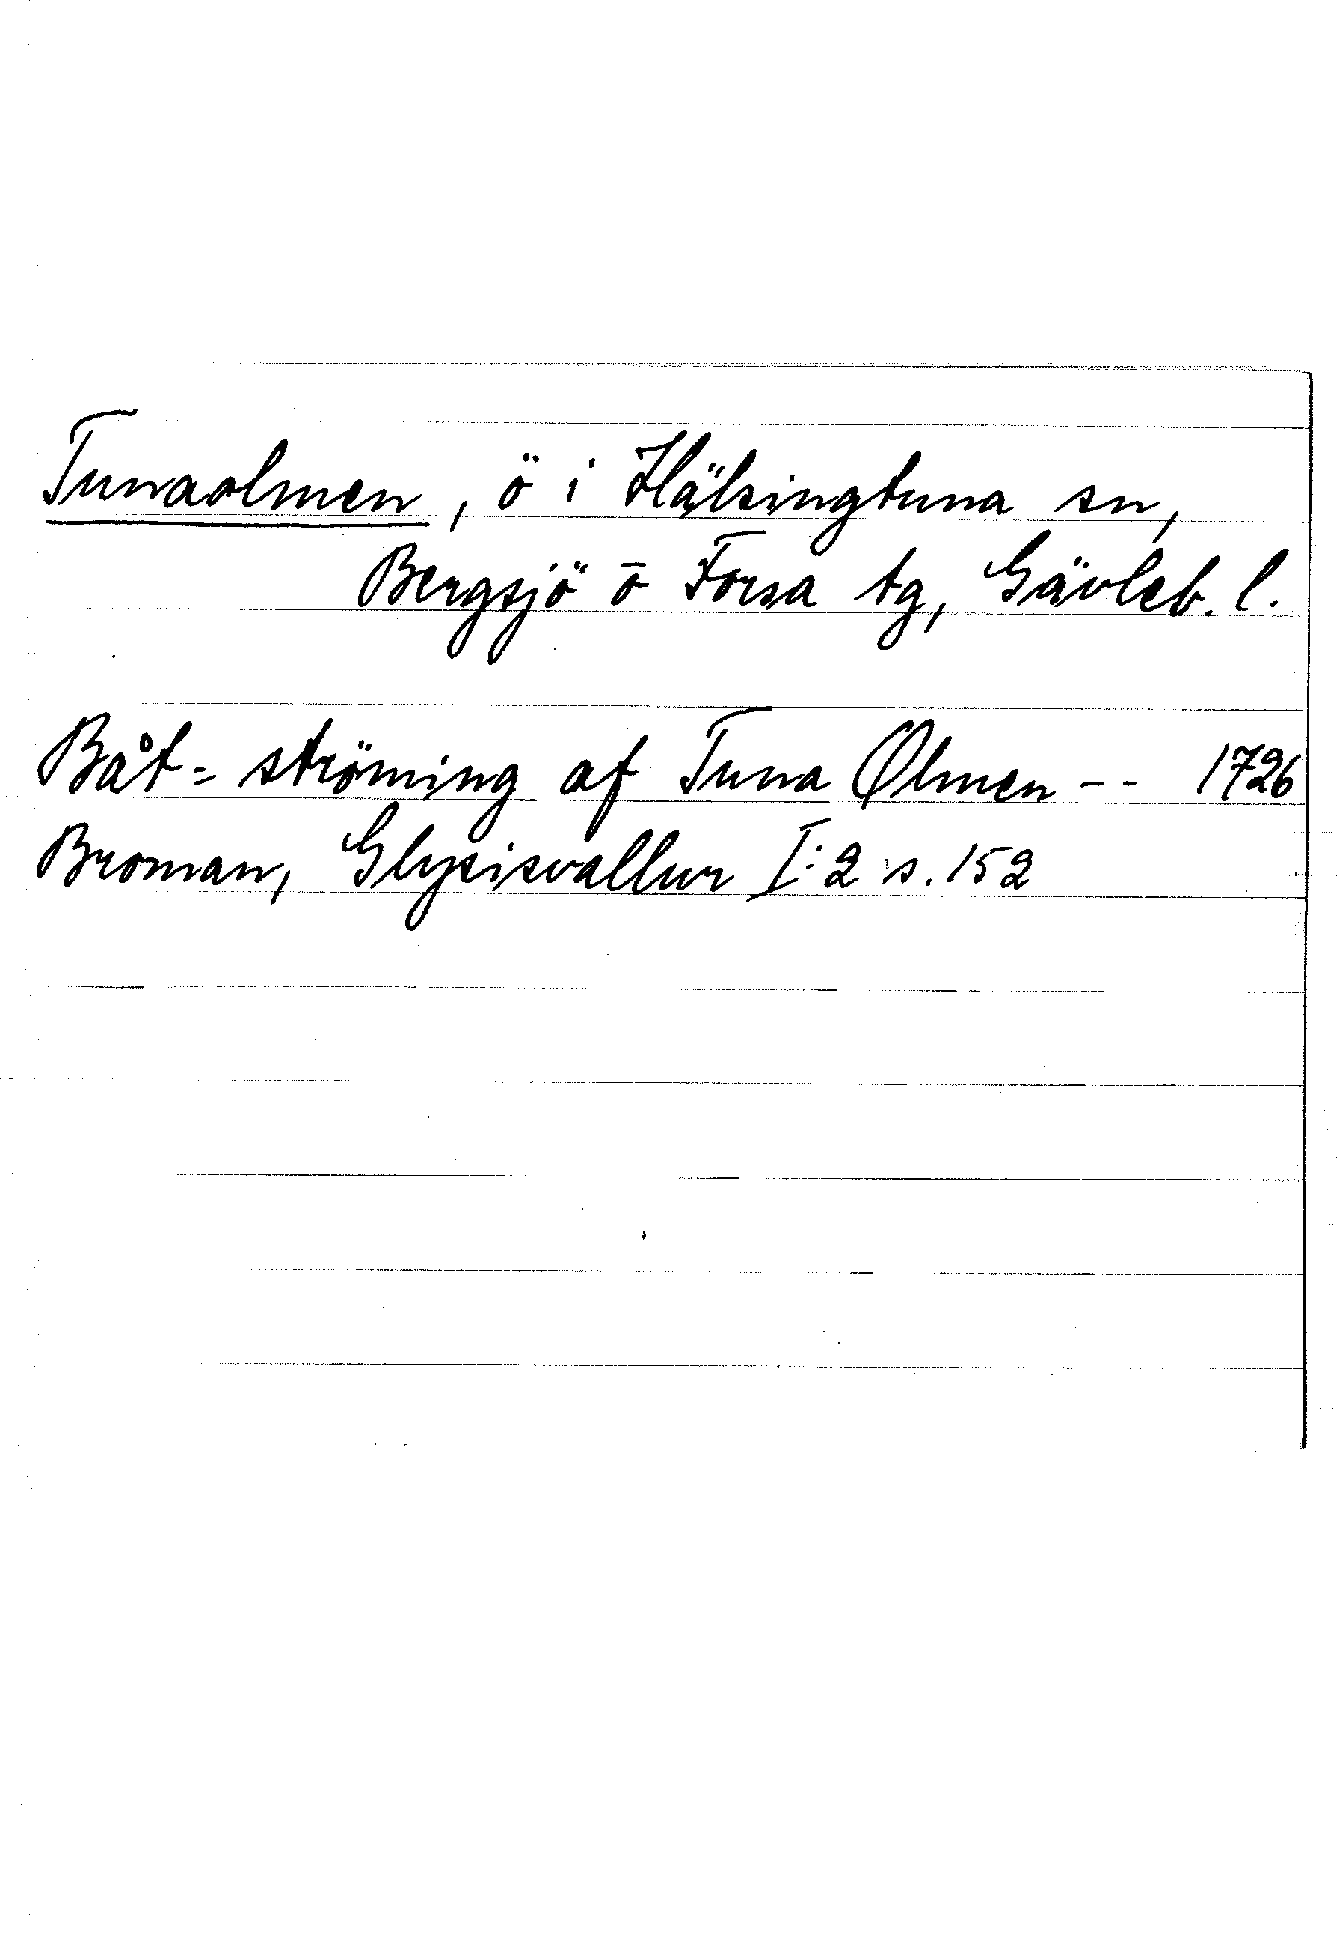 Tunaolmen, ö i Hälsingtuna sn,
Bergsjö o Forsa tg, Gävleb. l.
Båt= ströming af Tuna Ølmen -- 1726
Broman, Glysisvallur I:2 s. 152